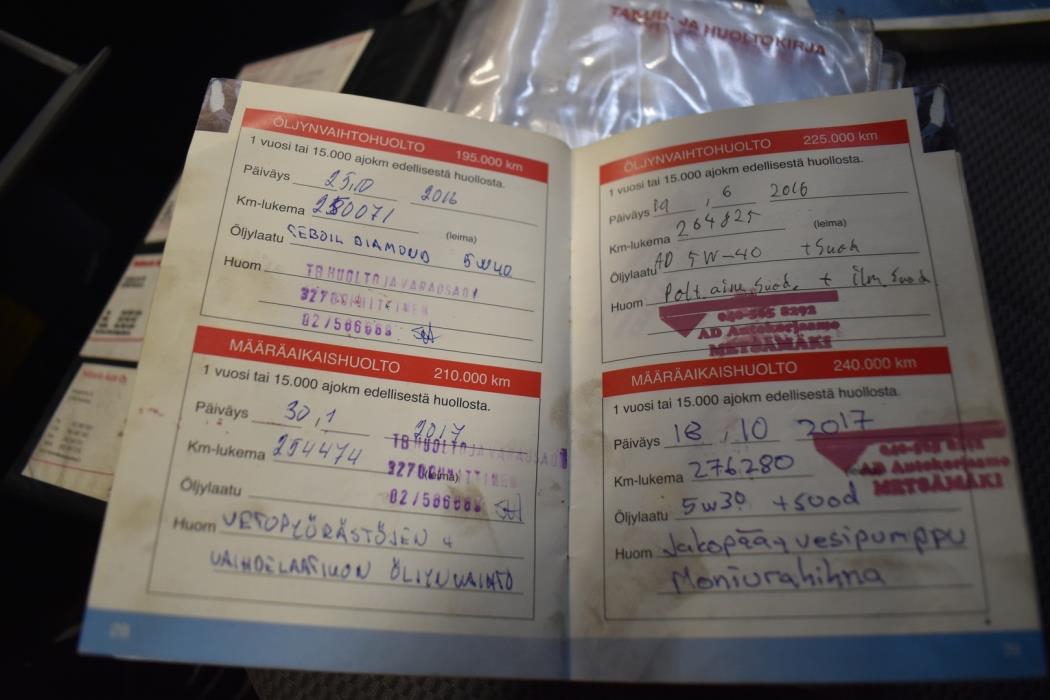 TAKUU- JA HUOLTOKIRJA
ÖLJYNVAIHTOHUOLTO 195.000 km
1 vuosi tai 15.000 ajokm edellisestä huollosta.
Päiväys 25.10 2016
Km-lukema 250071
(leima)
Öljylaatu SEBOIL DIAMOND 5W40
Huom
TB HUOLTO JA VARAOSA
327
02/566
MÄÄRÄAIKAISHUOLTO 210.000 km
1 vuosi tai 15.000 ajokm edellisestä huollosta.
Päiväys 30,1 2017
Km-lukema 254474
TB HUOLTO JA VARAOSA
(leima)
Öljylaatu
02/566
Huom VETOPYÖRÄSTÖJEN +
VAIHDELAATIKON ÖLJYNVAIHTO
28
ÖLJYNVAIHTOHUOLTO 225.000 km
1 vuosi tai 15.000 ajokm edellisestä huollosta.
Päiväys 19 , 6 2016
Km-lukema 264825
(leima)
Öljylaatu AD 5W-40 +Suod
Huom Polt. aine Suod. + ilm Suod
AD Autokorjaamo
METSÄMÄKI
MÄÄRÄAIKAISHUOLTO 240.000 km
1 vuosi tai 15.000 ajokm edellisestä huollosta.
Päiväys 18 , 10 2017
Km-lukema 276280
AD Autokorjaamo
METSÄMÄKI
Öljylaatu 5w30 +suod
Huom Jakopää+vesipumppu
Moniurahihna
29